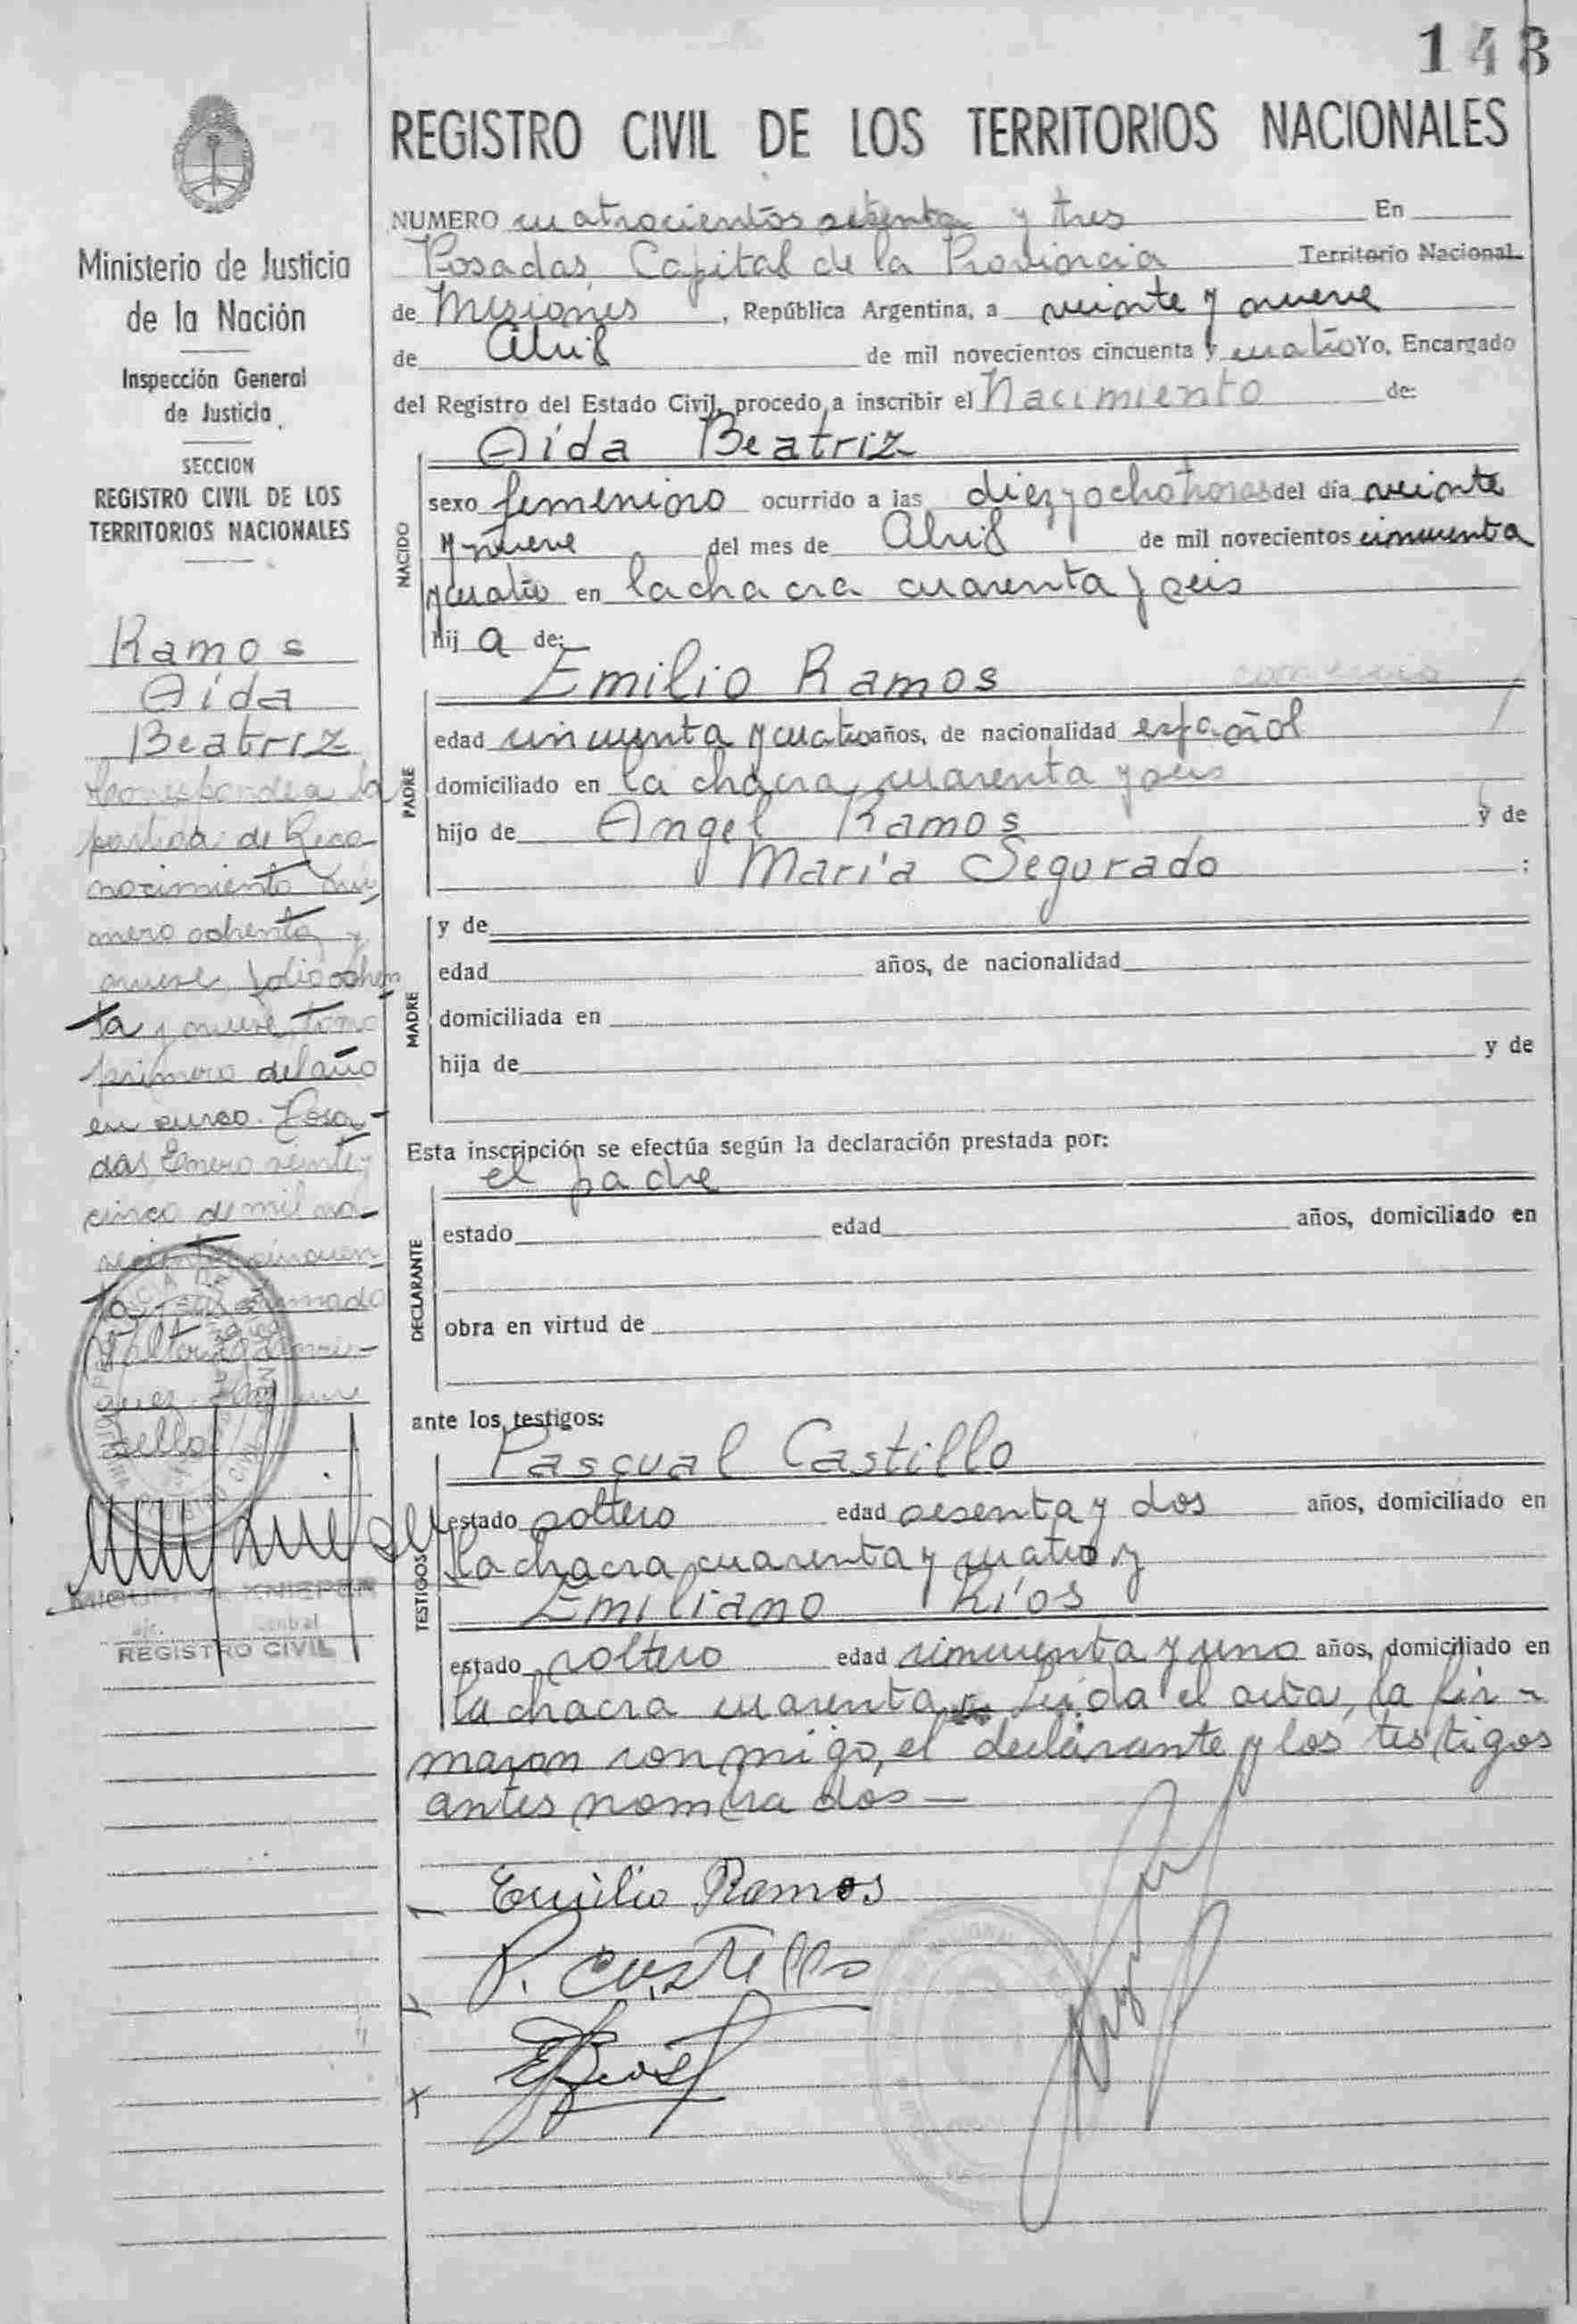 148
REGISTRO CIVIL DE LOS TERRITORIOS NACIONALES
Ministerio de Justicia
de la Nación
Inspección General
de Justicia
SECCION
REGISTRO CIVIL DE LOS
TERRITORIOS NACIONALES
Ramos
Aída
Beatriz
Corresponde a la
partida de Reco-
nocimiento nú-
mero ochenta y
nueve, folio ochen
ta y nueve, tomo
primero del año
en curso. Posa-
das Enero veinte y
cinco de mil no-
recientos cincuen
ta
sello
REGISTRO CIVIL
NUMERO cuatrocientos setenta y tres En
Posadas, Capital de la Provincia Territorio Nacional
de Misiones, República Argentina, a veinte y nueve
de Abril de mil novecientos cincuenta y cuatro Yo, Encargado
del Registro del Estado Civil, procedo a inscribir el Nacimiento de:
NACIDO
Aída Beatriz
sexo femenino ocurrido a las diez y ocho horas del día veinte
y nueve del mes de Abril de mil novecientos cincuenta
y cuatro en la chacra cuarenta y seis
hij a de:
PADRE
Emilio Ramos
edad cincuenta y cuatro años, de nacionalidad español
domiciliado en la chacra cuarenta y seis
hijo de Angel Ramos y de
María Segurado :
MADRE
y de
edad años, de nacionalidad
domiciliada en
hija de y de
Esta inscripción se efectúa según la declaración prestada por:
DECLARANTE
el padre
estado edad años, domiciliado en
obra en virtud de
ante los testigos:
TESTIGOS
Pascual Castillo
estado soltero edad sesenta y dos años, domiciliado en
la chacra cuarenta y cuatro y
Emiliano Ríos
estado soltero edad cincuenta y uno años, domiciliado en
la chacra cuarenta Leída el acta, la fir-
maron conmigo, el declarante y los testigos
antes nombrados—
Emilio Ramos
P. Castillo